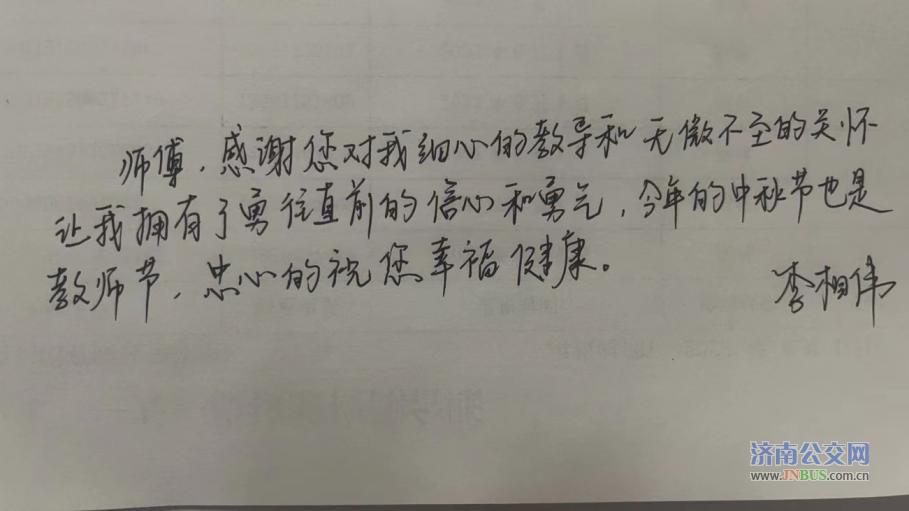 师傅，感谢您对我细心的教导和无微不至的关怀
让我拥有了勇往直前的信心和勇气，今年的中秋节也是
教师节，忠心的祝您幸福健康。
李相伟
济南公交网
www.JNBUS.com.cn